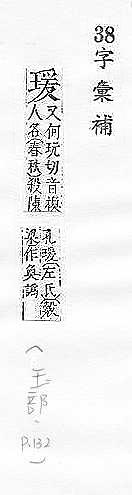 38
字彙補
瑗
又何玩切音換
人名春秋殺陳
孔瑗左氏穀
梁作奐誤
(玉部, P.132)